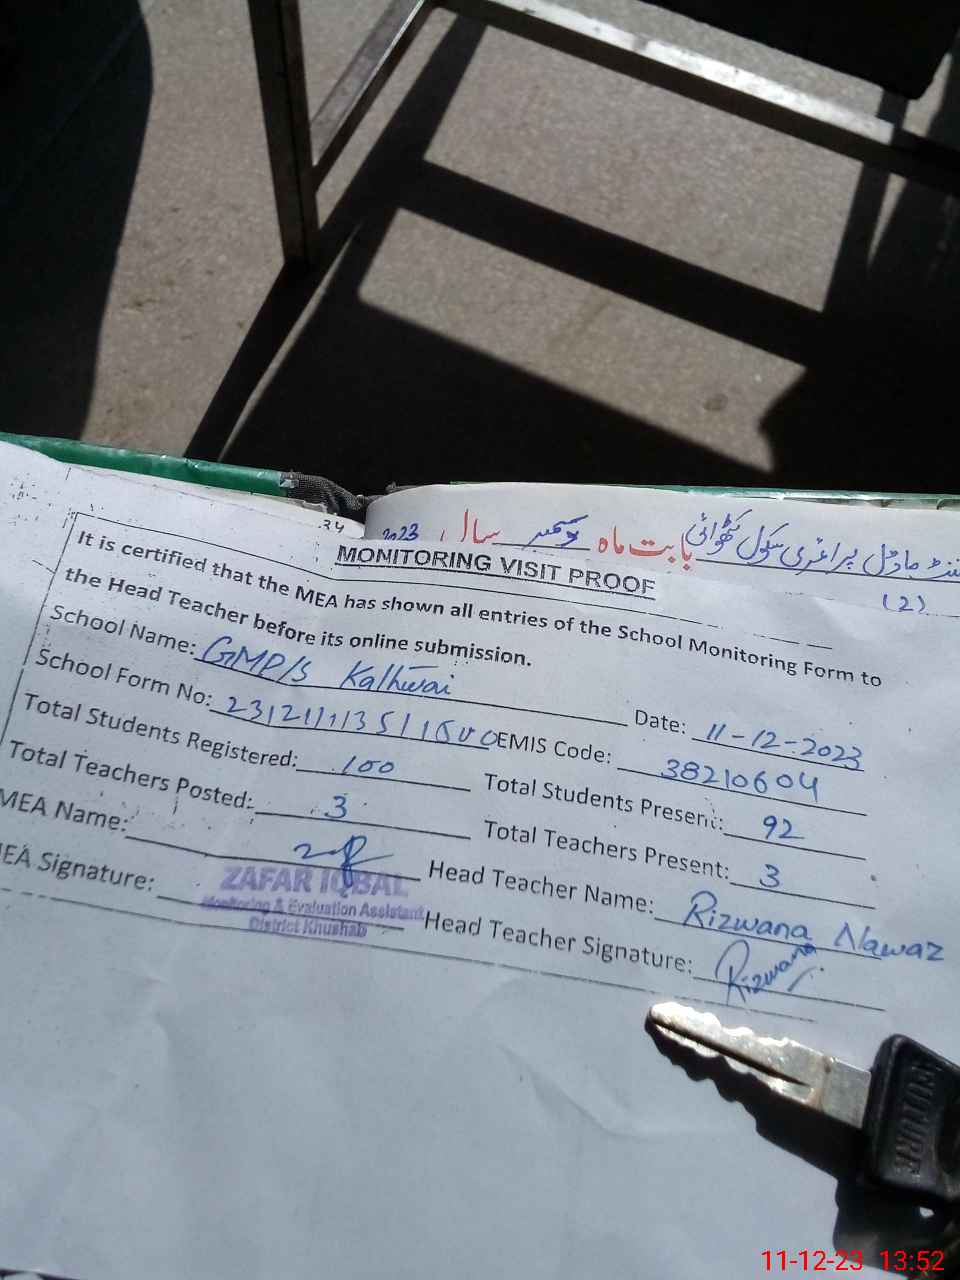 2023 سال دسمبر بابت ماہ ماڈل پرائمری سکول کٹھوائی
(2)
MONITORING VISIT PROOF
It is certified that the MEA has shown all entries of the School Monitoring Form to
the Head Teacher before its online submission.
School Name: GMP/S Kathwai Date: 11-12-2023
School Form No: EMIS Code: 38210604
Total Students Registered: 100 Total Students Present: 92
Total Teachers Posted: 3 Total Teachers Present: 3
MEA Name: Head Teacher Name: Rizwana Nawaz
MEA Signature: Head Teacher Signature: Rizwana
ZAFAR IQBAL
Monitoring & Evaluation Assistant
District Khushab
FUTURE
11-12-23 13:52